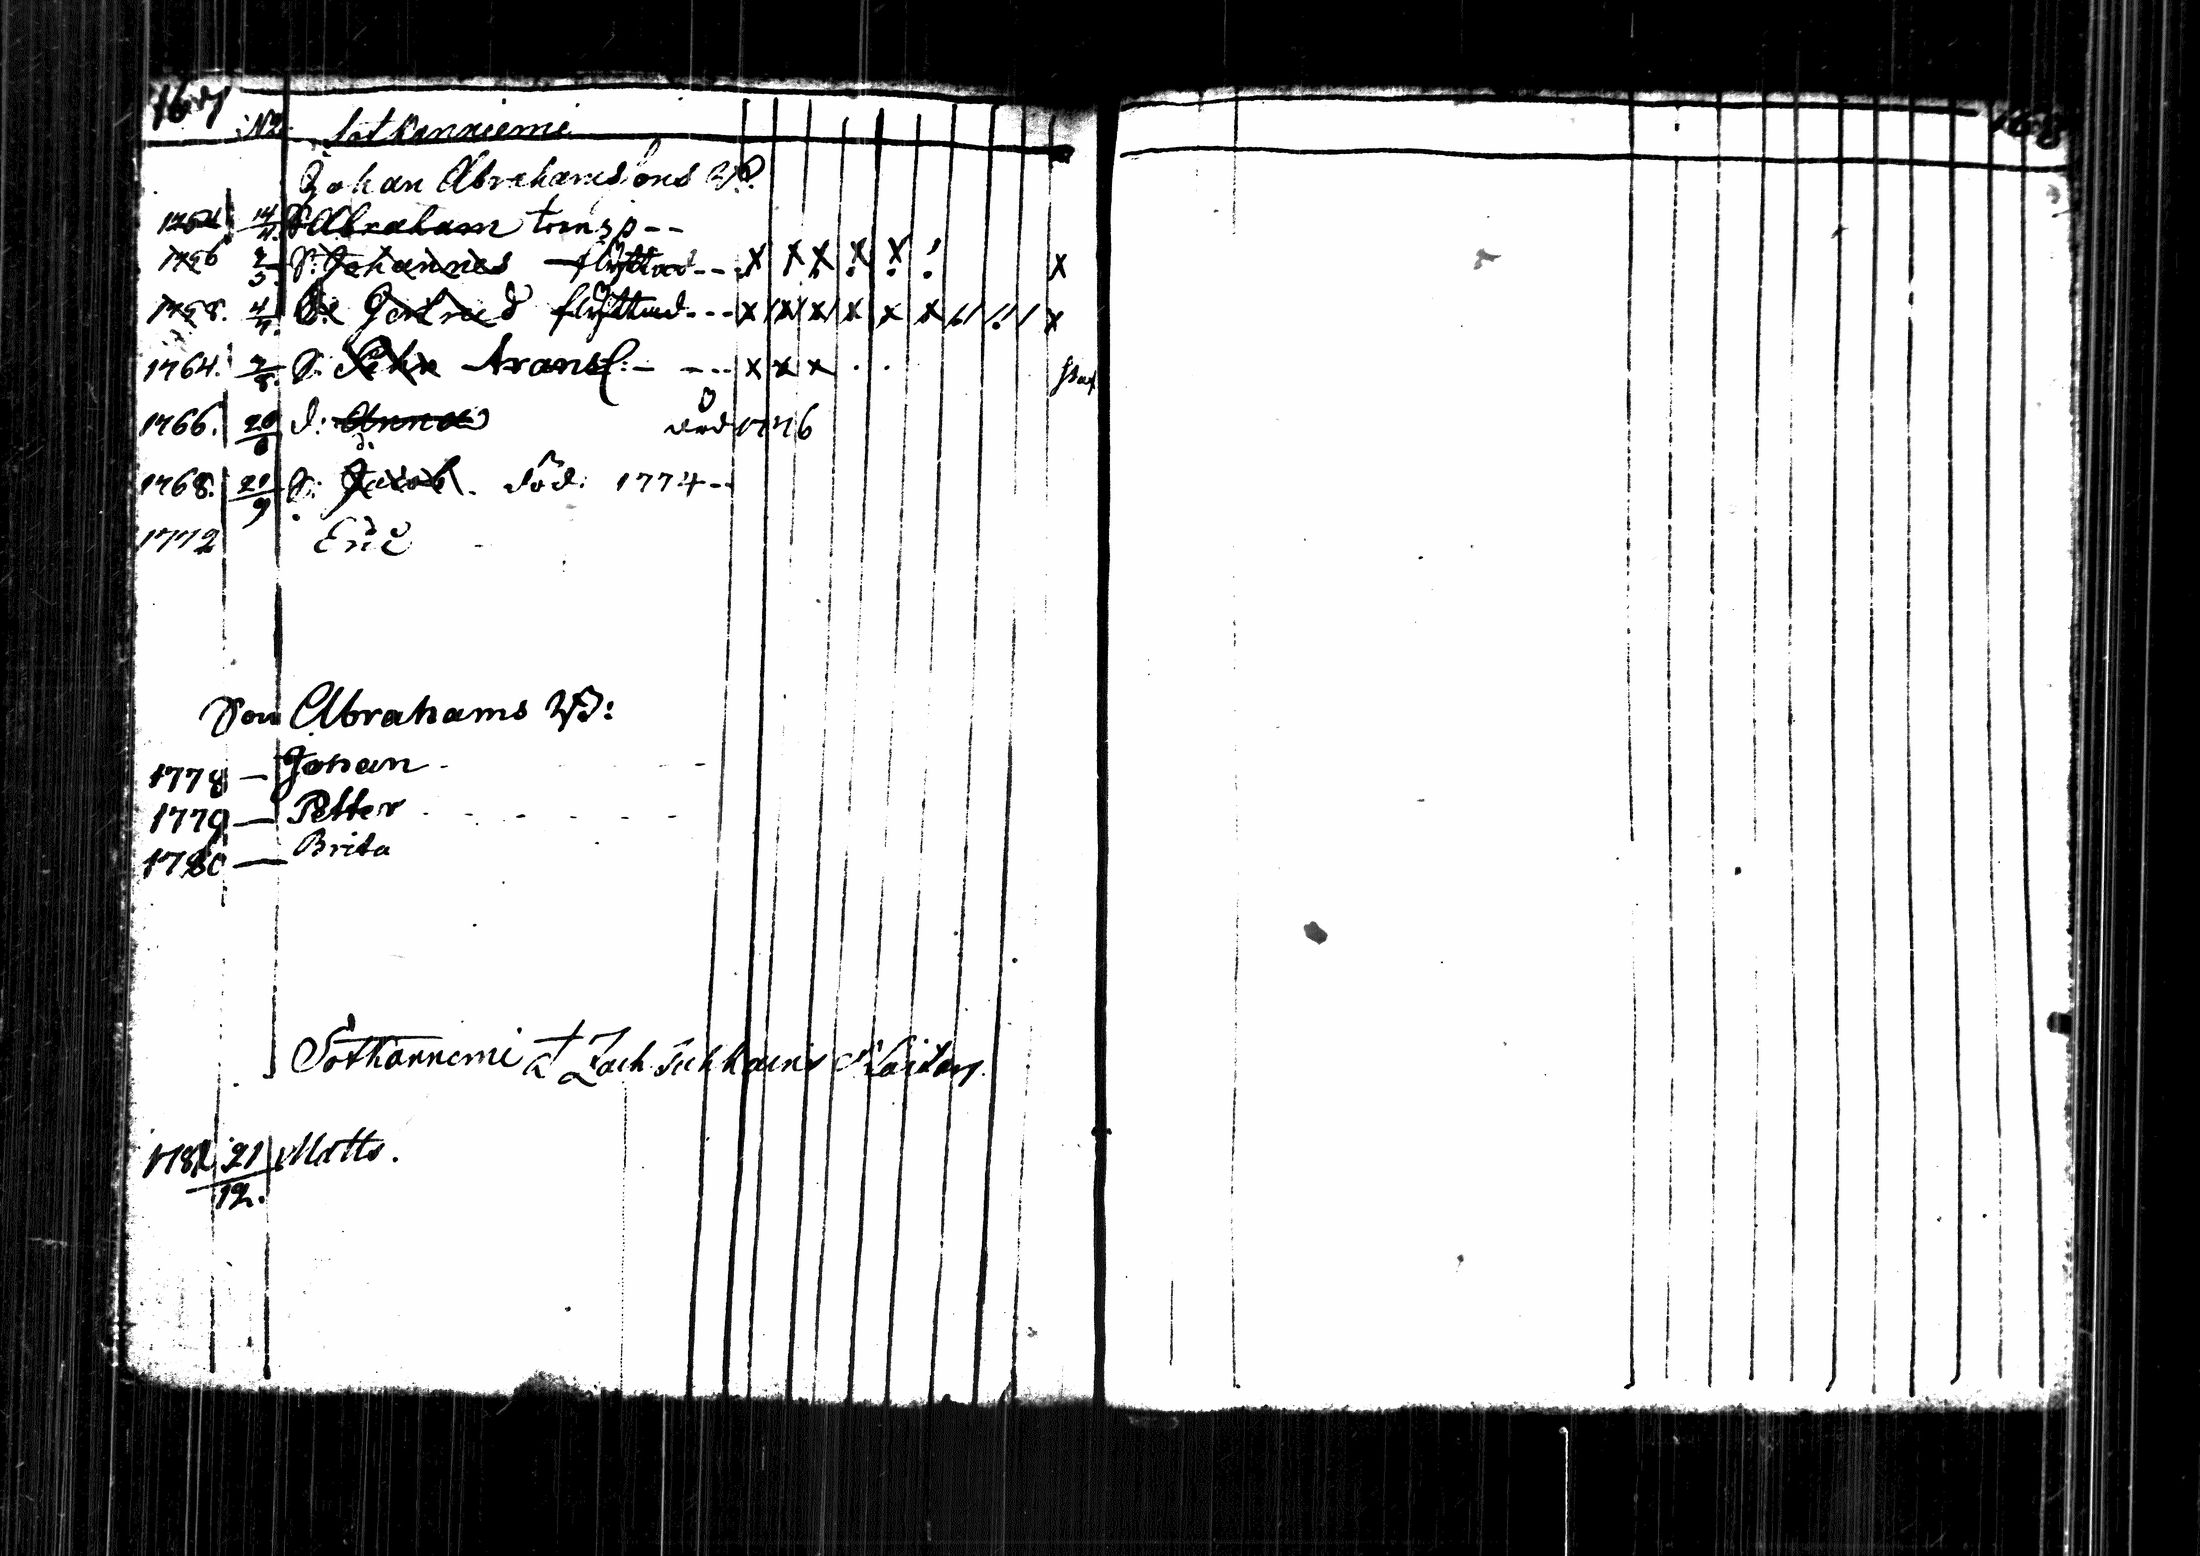 167
No 2. Sotkanniemi
Johan Abrahamssons
1754 14/4 S Abraham transp --
1756 2/3 S: Johannes flyttad --- x x x x x x
1758. 4/4. Gertrud flyttad --- x x x x x x x
1764. 2/8. S: transf: - --- x x x
1766. 20/6 d: Anna död 1776
1768. 21/9 S: Jacob. död: 1774 --
1772 Eric
Son Abrahams
1778 — Johan
1779 — Petter
1780 — Brita
Sotkannemi Zach
21/12. Matts.
168